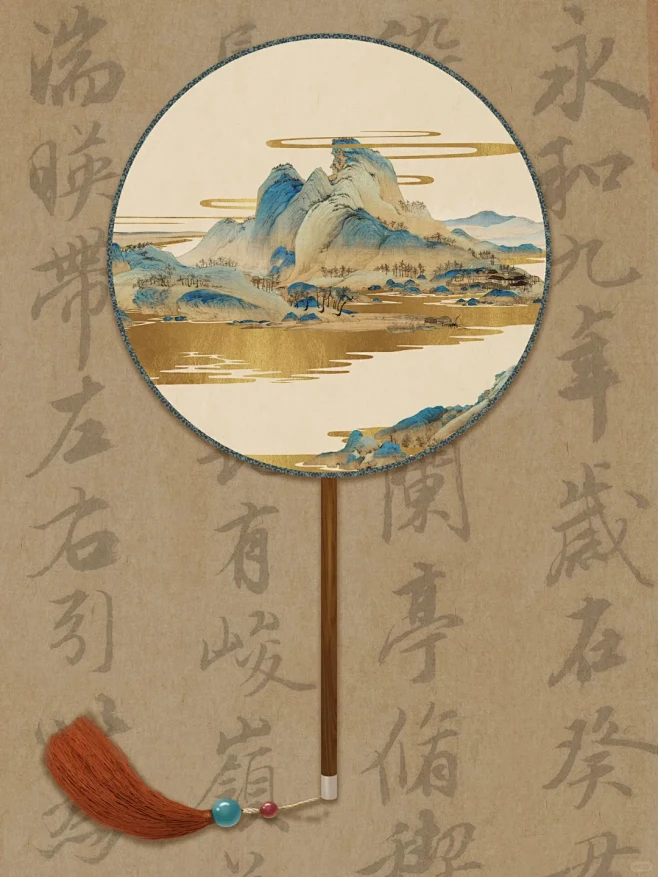 永和九年歲在癸丑
蘭亭脩禊
有峻嶺
湍暎帶左右引